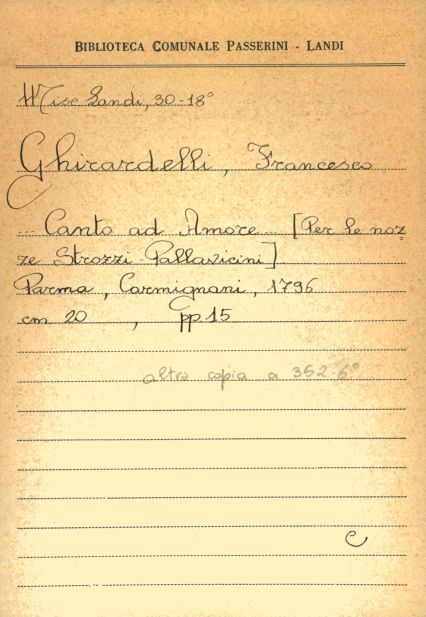 BIBLIOTECA COMUNALE PASSERINI - LANDI
Misc Landi, 30-18°
Ghirardelli, Francesco
... Canto ad Amore ... [Per le noz-
ze Strozzi-Pallavicini].
Parma, Carmignani, 1796
cm 20 , pp 15
altra copia a 352-6°
C